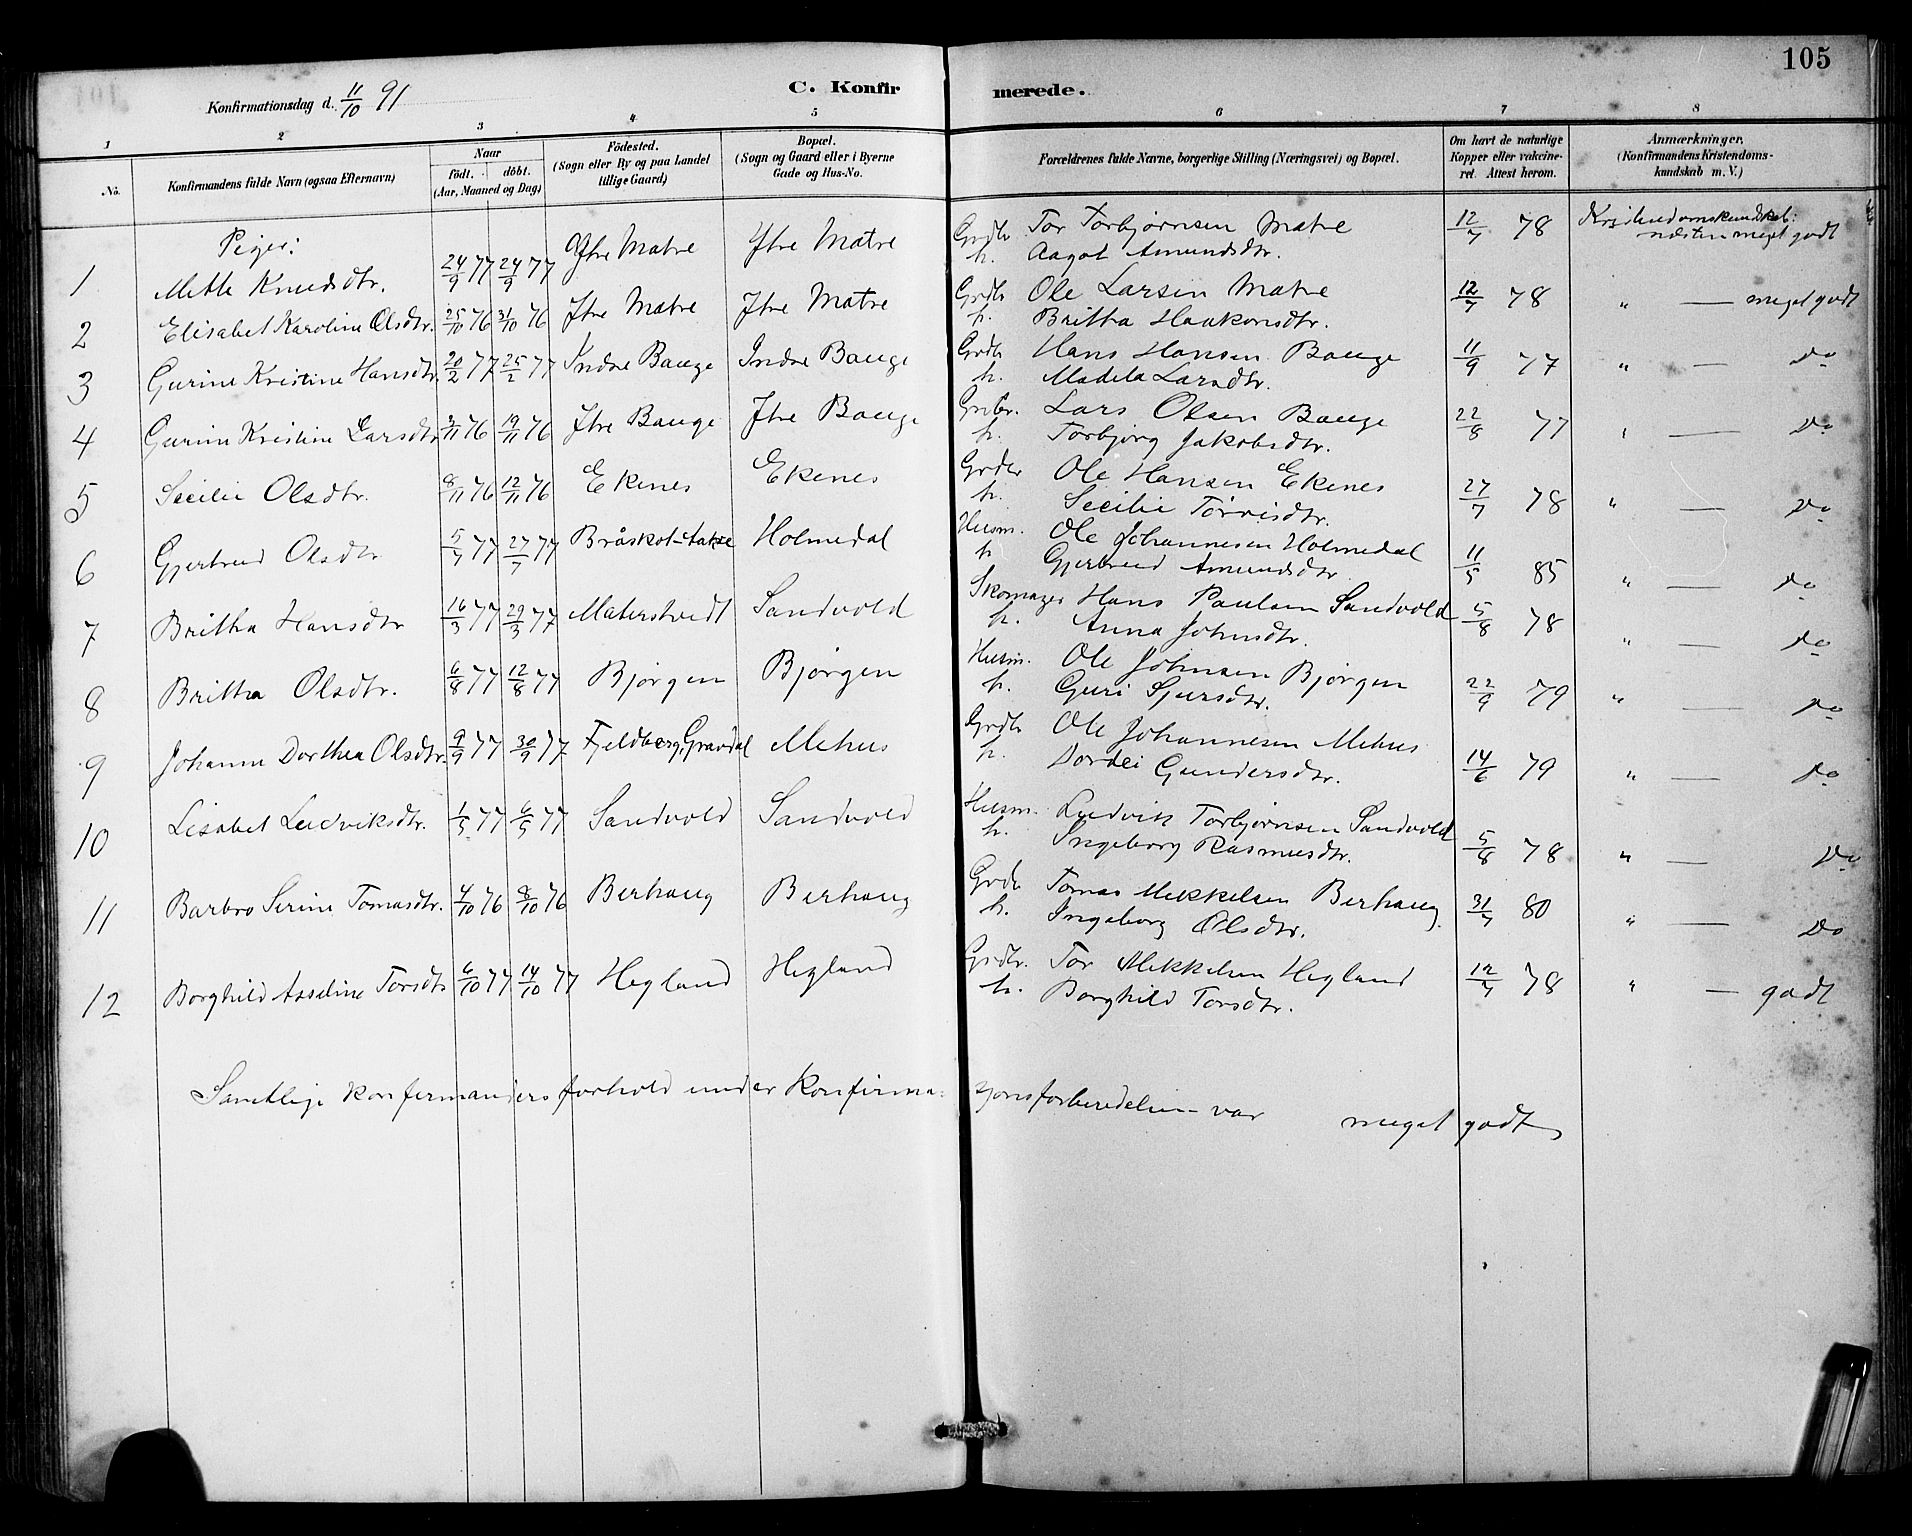 105
Konfirmationsdag d. 11/10 91
C. Konfirmerede.
1 2 3 4 5 6 7 8
No.
Konfirmandens fulde Navn (ogsaa Efternavn)
Naar
födt. döbt.
(Aar, Maaned og Dag)
Födested.
(Sogn eller By og paa Landet
tillige Gaard.)
Bopæl.
(Sogn og Gaard eller i Byerne
Gade og Hus-No.
Forældrenes fulde Navne, borgerlige Stilling (Næringsvei) og Bopæl.
Om havt de naturlige
Kopper eller vakcine-
ret. Attest herom.
Anmærkninger,
(Konfirmandens Kristendoms-
kundskab m. V.)
Piger:
1 Mette Knudsdtr. 24/9 77 24/9 77 Ytre Matre Ytre Matre Grdb. Tor Torbjørnsen Matre 12/7 78 Kristendomskundskab:
h. Aagot Amundsdtr. næsten meget godt
2 Elisabet Karoline Olsdtr. 25/10 76 31/10 76 Ytre Matre Ytre Matre Grdb. Ole Larsen Matre 12/7 78 " — meget godt
h. Britha Haakonsdtr.
3 Gurine Kristine Hansdtr. 20/2 77 25/2 77 Indre Bauge Indre Bauge Grdb. Hans Hansen Bauge 11/9 77 " — Do
h. Madela Larsdtr.
4 Gurine Kristine Larsdtr. 2/11 76 19/11 76 Ytre Bauge Ytre Bauge Grdbr. Lars Olsen Bauge 22/8 77 " — Do
h. Torbjørg Jakobsdtr.
5 Secilie Olsdtr. 8/11 76 12/11 76 Ekenes Ekenes Ole Hansen Ekenes 27/7 78 " — Do
h. Secilie Tørrisdtr.
6 Gjertrud Olsdtr 5/7 77 27/7 77 Holmedal Husm. Ole Johannesen Holmedal 11/5 85 " — Do
h. Gjertrud Amundsdtr.
7 Britha Hansdtr 16/3 77 29/3 77 Materstvedt Sandvold Skomager Hans Paulsen Sandvold 5/8 78 " Do
h. Anna Johnsdtr.
8 Britha Olsdtr. 6/8 77 12/8 77 Bjørgen Bjørgen Husm. Ole Johnsen Bjørgen 22/9 79 " — Do
h. Guri Sjursdtr.
9 Johanne Dorthea Olsdtr. 9/9 77 30/9 77 Fjeldberg, Gravdal Mehus Grdb. Ole Johannesen Mehus 14/6 79 " — Do
h. Dordei Gundersdtr.
10 Lisabet Ludviksdtr. 1/5 77 6/5 77 Sandvold Sandvold Husm. Ludvik Torbjørnsen Sandvold 5/8 78 " — Do
h. Ingeborg Rasmusdtr.
11 Barbro Serine Tomasdtr. 4/10 76 8/10 76 Berhaug Berhaug Grdb. Tomas Mikkelsen Berhaug 31/7 80 " — Do
h. Ingeborg Olsdtr.
12 Borghild Asseline Torsdtr 6/10 77 14/10 77 Hegland Hegland Grdbr. Tor Mikkelsen Hegland 12/7 78 " — godt
h. Borghild Torsdtr.
Samtlige konfirmanders forhold under konfirmasjonsforberedelsen var meget godt